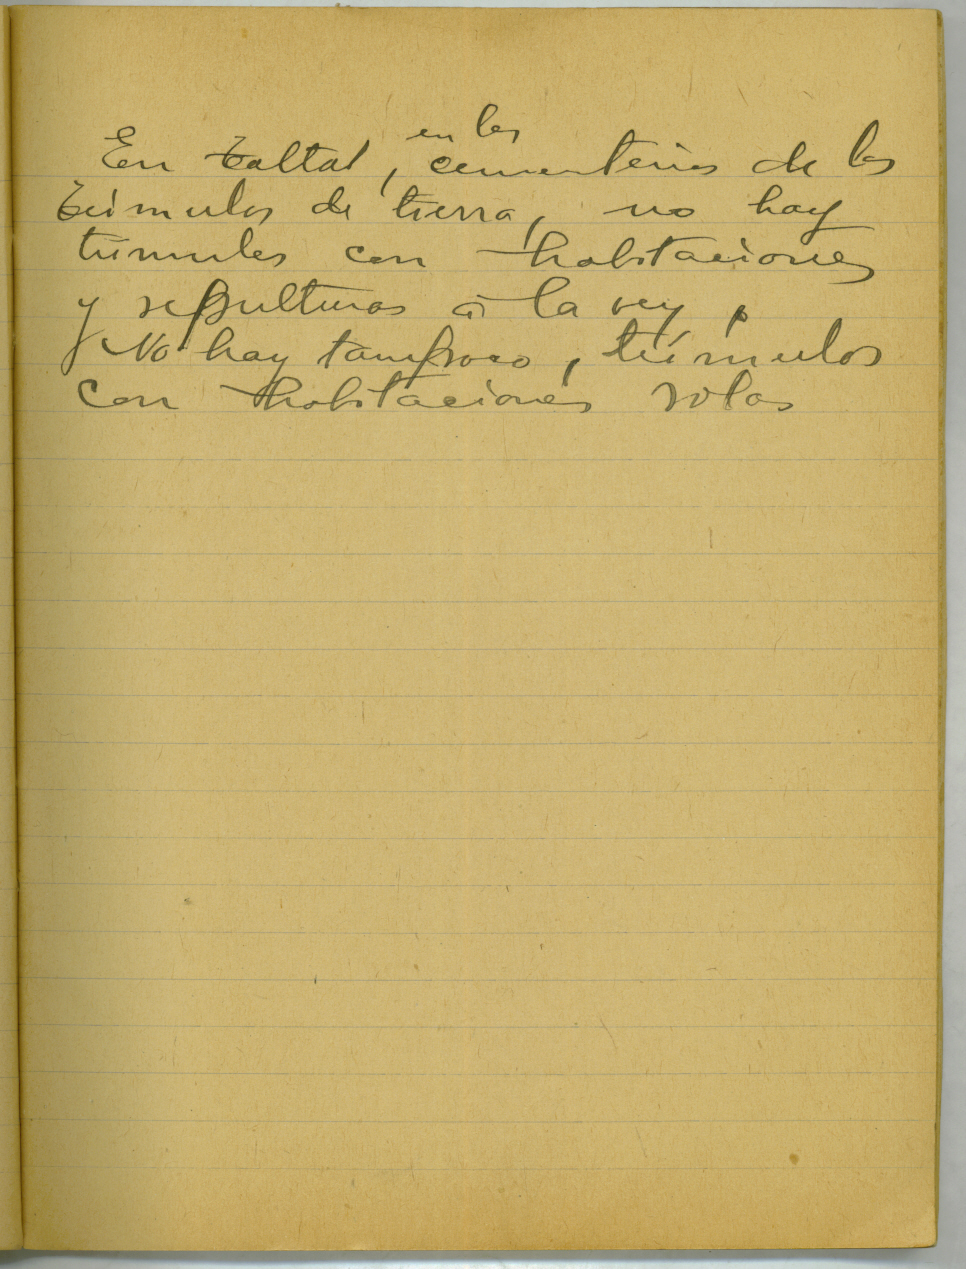 en los
En Taltal, cementerios de los
túmulos de tierra, no hay
túmulos con habitaciones
y sepulturas a la vez.
No hay tampoco, túmulos
con habitaciones solas